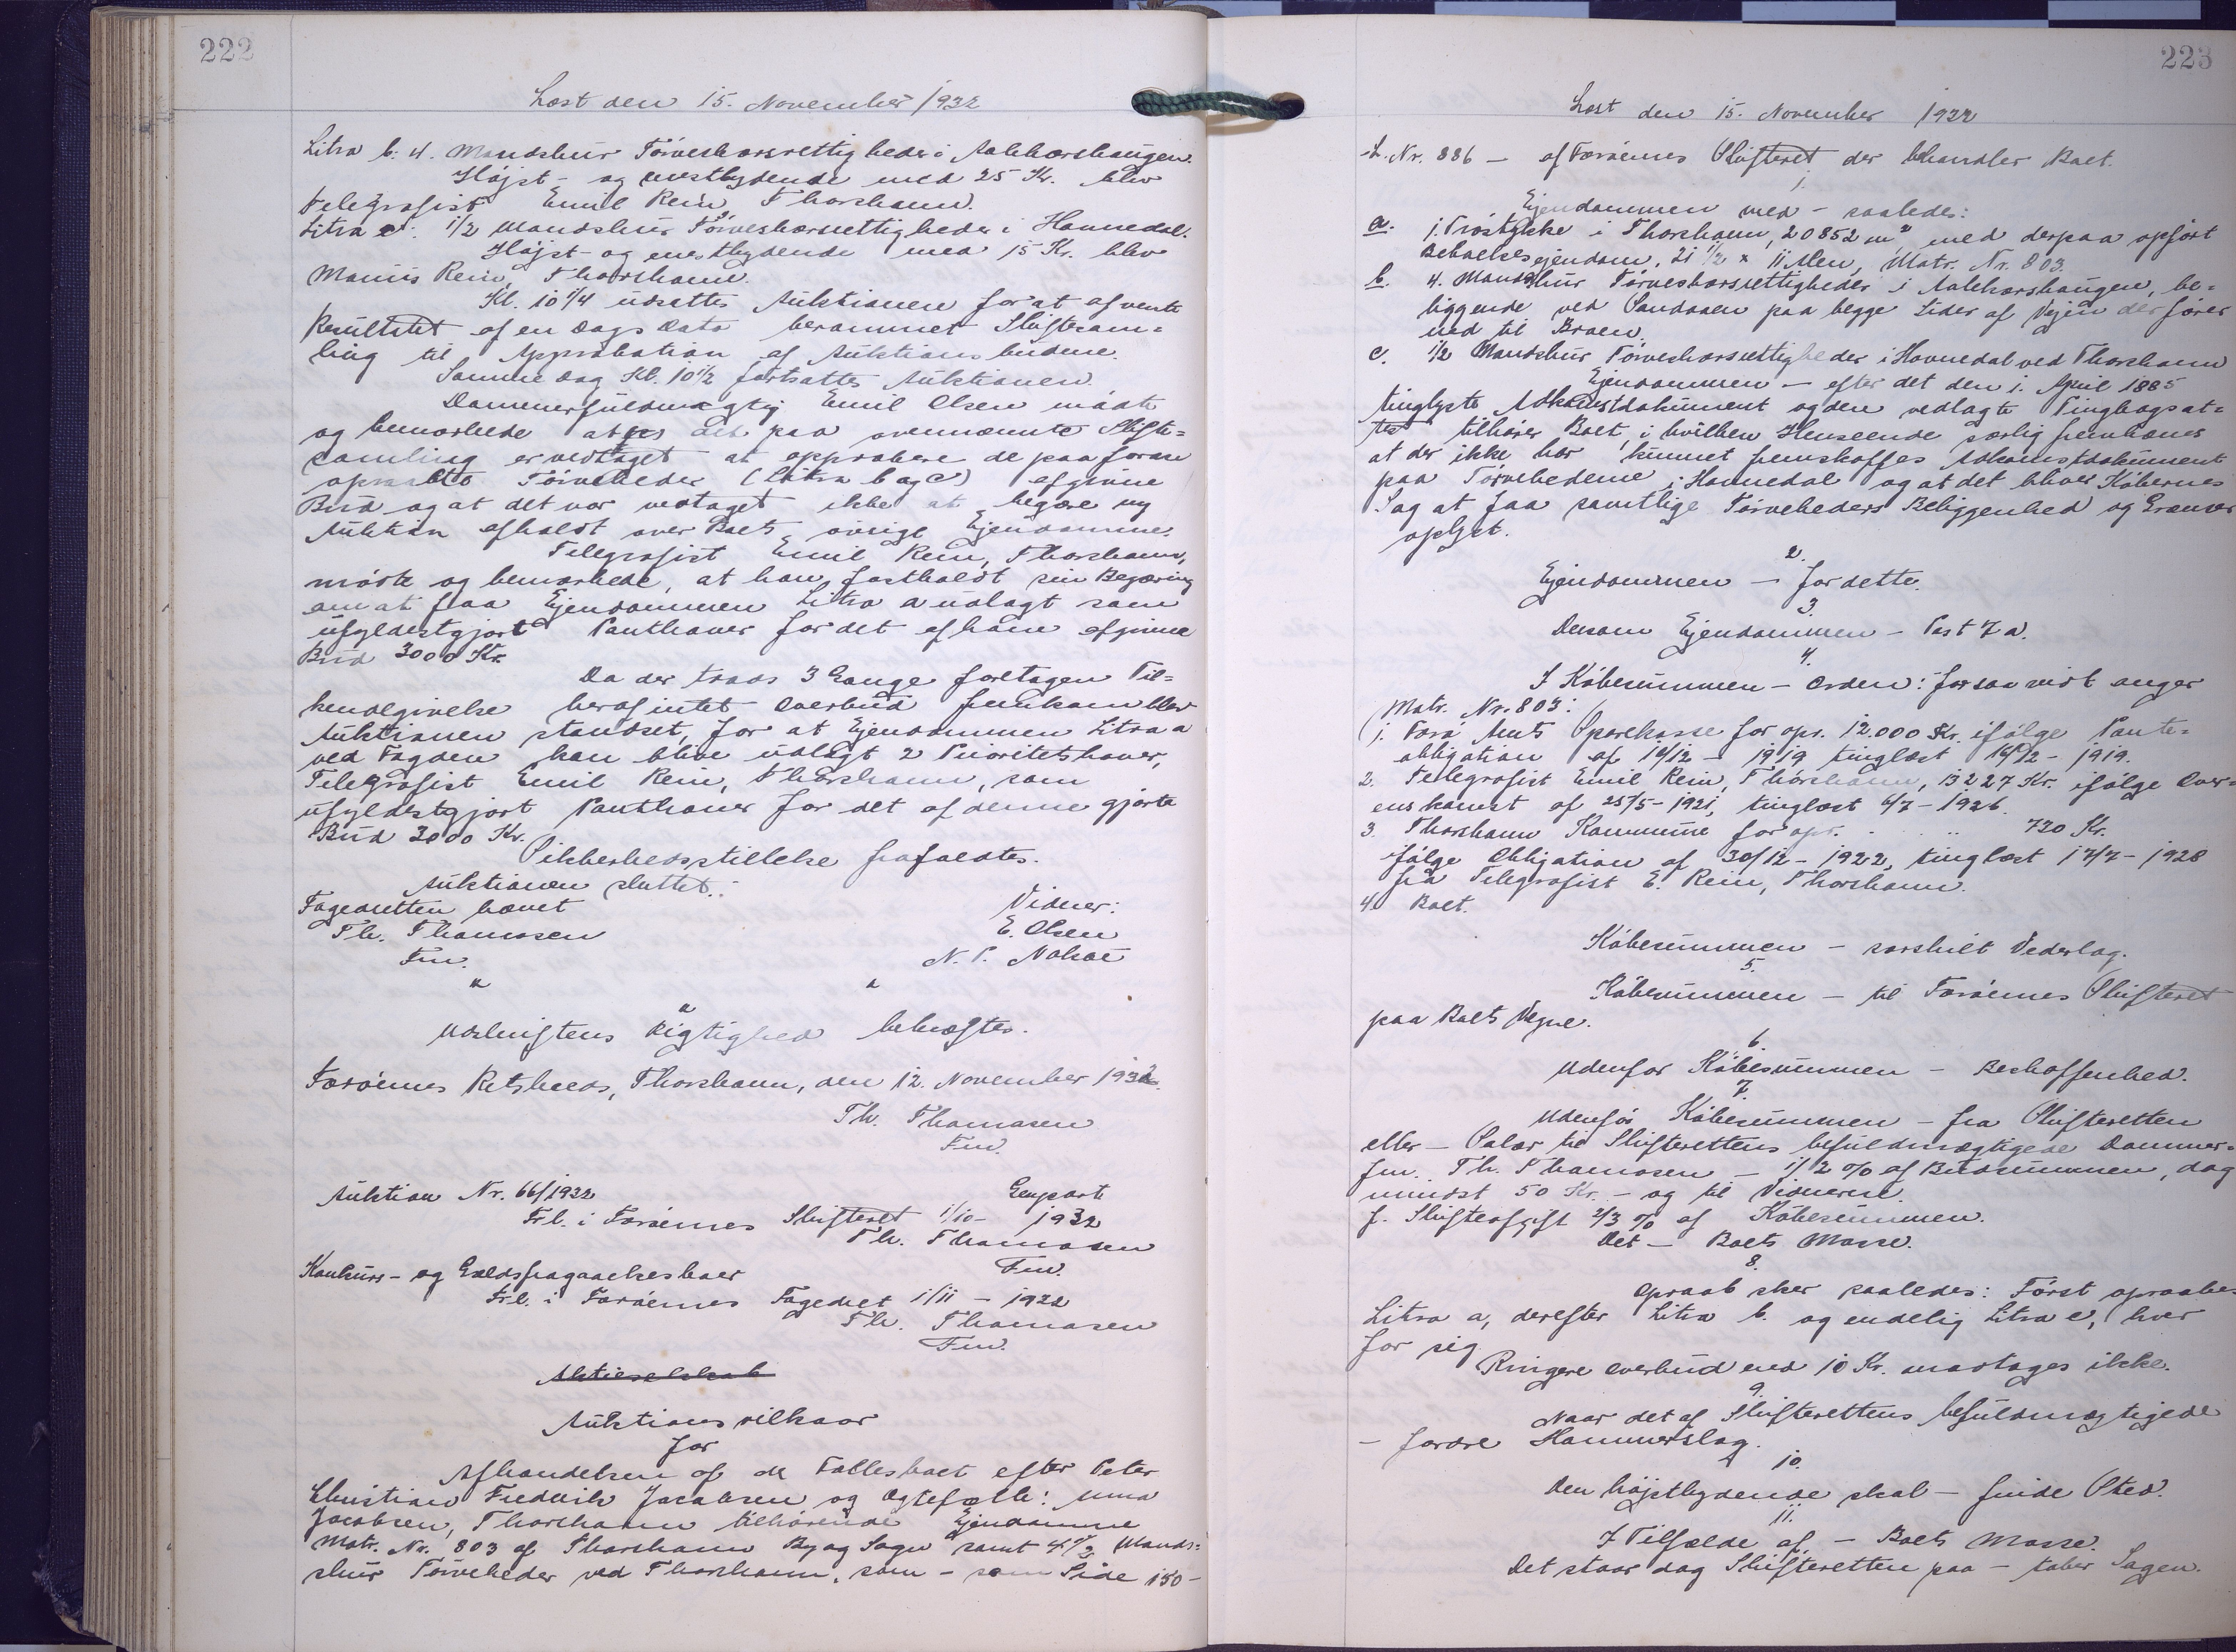 222
Læst den 15. November 1932
Litra b: 4. Mandskur Tørveskærsrettigheder i Aakkærshaugen.
Højst- og enestbydende med 25 Kr. blev
Telegrafist Emil Rein, Thorshavn.
Litra c: 1/2 Mandskur Tørveskærsrettigheder i Havnedal.
Højst- og enestbydende med 15 Kr. blev
Manus Rein, Thorshavn.
Kl. 10 1/4 udsattes Auktionen for at afvente
Resultatet af en Dags Dato berammet Skiftesam=
ling til Approbation af Auktionsbudene.
Samme Dag Kl. 10 1/2 fortsattes Auktionen.
Dommerfuldmægtig Emil Olsen mødte
og bemærkede at det paa ovennævnte Skifte=
samling er vedtaget at approbere de paa foran
opraabte Tørveheder (Litra b og c) afgivne
Bud og at det var vedtaget ikke at begære ny
Auktion afholdt over Boets øvrige Ejendomme.
Telegrafist Emil Rein, Thorshavn,
mødte og bemærkede, at han fastholdt sin Begæring
om at faa Ejendommen Litra a udlagt som
ufyldestgjort Panthaver for det af ham afgivne
Bud 3000 Kr.
Da der trods 3 Gange foretagen Til=
kendegivelse heraf intet Overbud fremkom blev
Auktionen standset, for at Ejendommen Litra a
ved Fogden kan blive udlagt 2 Prioritetshaver,
Telegrafist Emil Rein, Thorshavn, som
ufyldestgjort Panthaver for det af denne gjorte
Bud 3000 Kr.
Sikkerhedsstillelse frafaldtes.
Auktionen sluttet.
Fogedretten hævet
Vidner:
Th. Thomasen
E. Olsen
Fm.
N. P. Nolsøe
" "
"
Udskriftens Rigtighed bekræftes.
Færøernes Retskreds, Thorshavn, den 12. November 1932.
Th. Thomasen
Fm.
Auktion Nr. 66/1932
Genpart
Frl. i Færøernes Skifteret 1/10- 1932
Th. Thomasen
Fm.
Konkurs- og Gældsfragaaelsesboer
Frl. i Færøernes Fogedret 1/11 - 1932
Th. Thomasen
Fm.
Aktieselskab
Auktionsvilkaar
for
Afhændelsen af de Fællesboet efter Peter
Christian Fredrik Jacobsen og Ægtefælle: Unna
Jacobsen, Thorshavn tilhørende Ejendomme
Matr. Nr. 803 af Thorshavn By og Sogn samt 4 1/2 Mands=
skur Tørveheder ved Thorshavn, som - som Side 150-
223
Læst den 15. November 1932
L. Nr. 886 - af Færøernes Skifteret der behandler Boet.
1.
Ejendommen med - saaledes:
a. 1. Trøstykke i Thorshavn, 20852 m² med derpaa opført
Beboelsesejendom, 21 1/2 x 11 Alen, Matr. Nr. 803.
b. 4. Mandskur Tørveskærsrettigheder i Aakkærshaugen, be=
liggende ved Sandaaen paa begge Sider af Vejen der fører
ned til Broen.
c. 1/2 Mandskur Tørveskærsrettigheder i Havnedal ved Thorshavn
Ejendommen - efter det den 1. April 1885
tinglyste Adkomstdokument og den vedlagte Tingbogsat=
test tilhører Boet, i hvilken Henseende særlig fremhæves
at der ikke har kunnet fremskaffes Adkomstdokument
paa Tørvehederne i Havnedal og at det bliver Købernes
Sag at faa samtlige Tørveheders Beliggenhed og Grænser
oplyst.
2.
Ejendommen - for dette.
3.
Dersom Ejendommen - Post 7 a.
4.
I Købesummen - Orden: forsaavidt angaar
Matr. Nr. 803:
1. Færø Amts Sparekasse for opr. 12.000 Kr. ifølge Pante=
obligation af 14/12 - 1919 tinglæst 16/12 - 1919.
2. Telegrafist Emil Rein, Thorshavn, 13227 Kr. ifølge Over=
enskomst af 25/5-1921, tinglæst 6/7-1926.
3. Thorshavn Kommune for opr. . . . 720 Kr.
ifølge Obligation af 30/12-1922, tinglæst 17/7-1928
fra Telegrafist E. Rein, Thorshavn.
4. Boet.
Købesummen - særskilt Vederlag.
5.
Købesummen - til Færøernes Skifteret
paa Boets Vegne.
6.
Udenfor Købesummen - Beskaffenhed.
7.
Udenfor Købesummen - fra Skifteretten
eller - Salær til Skifterettens befuldmægtigede Dommer=
fm. Th. Thomasen - 1/2 % af Budsummen, dog
mindst 50 Kr. - og til Vidnerne.
f. Skifteafgift 2/3 % af Købesummen.
Det - Boets Masse.
8.
Opraab sker saaledes: Først opraabes
Litra a, derefter Litra b. og endelig Litra c, hver
for sig.
Ringere Overbud end 10 Kr. modtages ikke.
9.
Naar det af Skifterettens befuldmægtigede
- fordre Hammerslag.
10.
Den højstbydende skal - finde Sted.
11.
I Tilfælde af, - Boets Masse.
Det staar dog Skifteretten paa - taber Sagen.